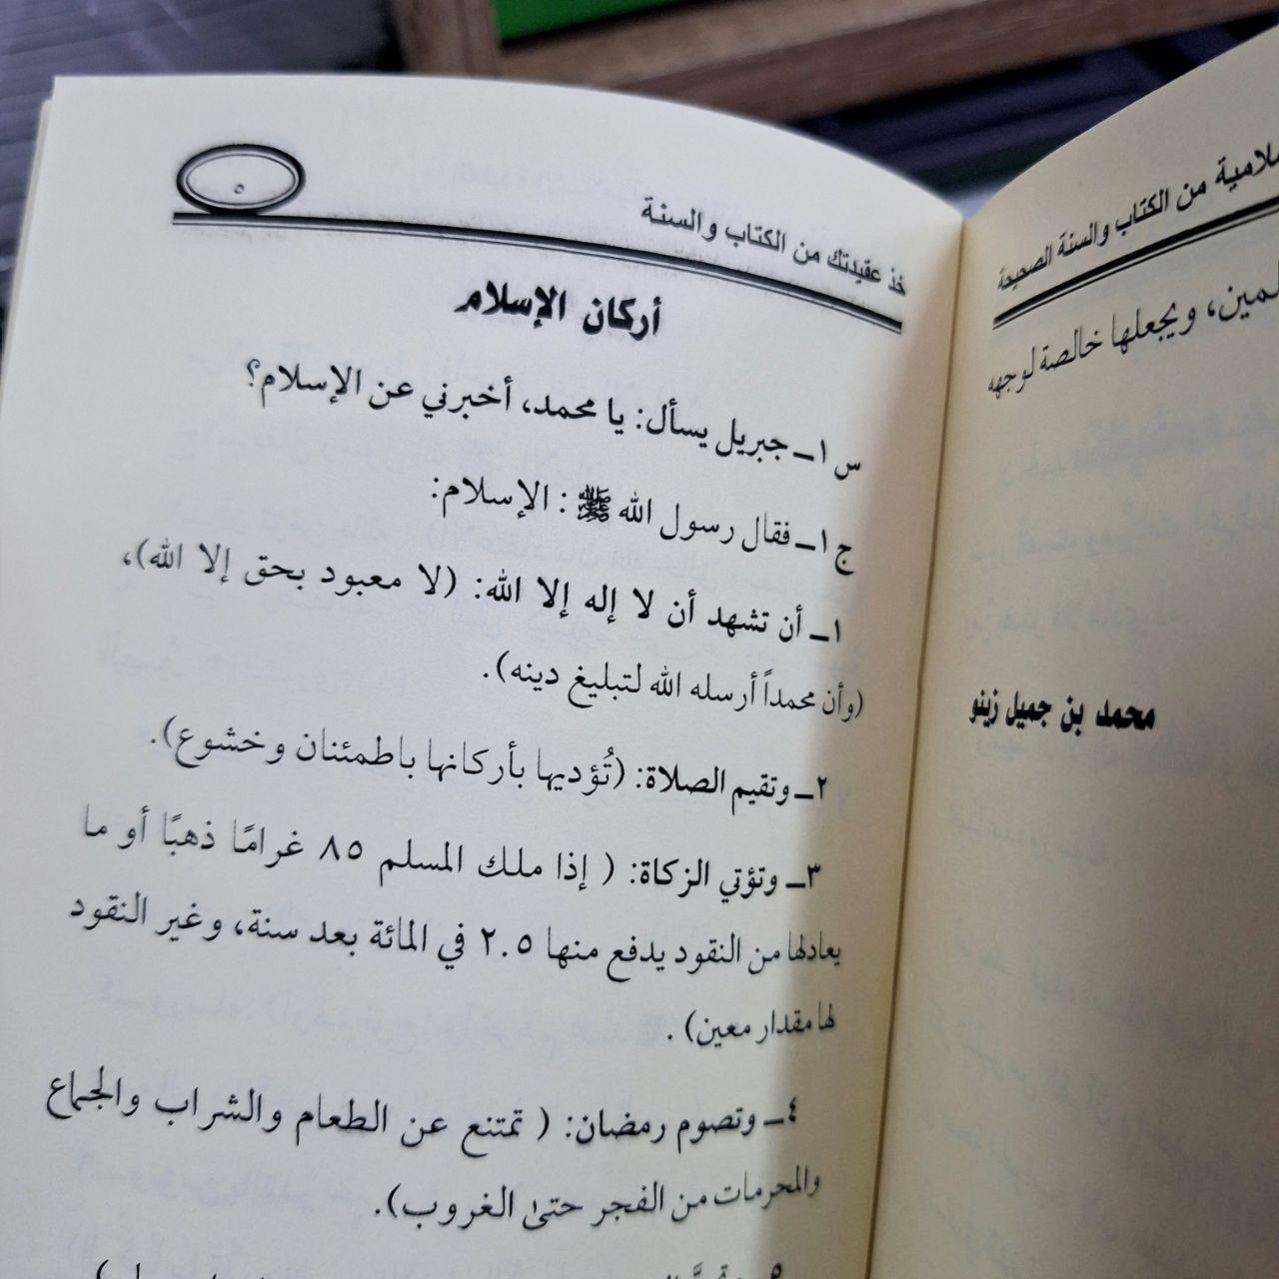 لامية من الكتاب والسنة الصحيحة
لمين، ويجعلها خالصة لوجهه
محمد بن جميل زينو
خذ عقيدتك من الكتاب والسنة
٥
أركان الإسلام
س ١ـ جبريل يسأل: يا محمد، أخبرني عن الإسلام؟
ج ١ـ فقال رسول الله ﷺ : الإسلام:
١ـ أن تشهد أن لا إله إلا الله: (لا معبود بحق إلا الله)،
(وأن محمداً أرسله الله لتبليغ دينه).
٢ـ وتقيم الصلاة: (تُؤديها بأركانها باطمئنان وخشوع).
٣ـ وتؤتي الزكاة: ( إذا ملك المسلم ٨٥ غرامًا ذهبًا أو ما
يعادلها من النقود يدفع منها ٢.٥ في المائة بعد سنة، وغير النقود
لها مقدار معين) .
٤ـ وتصوم رمضان: ( تمتنع عن الطعام والشراب والجماع
والمحرمات من الفجر حتىٰ الغروب).